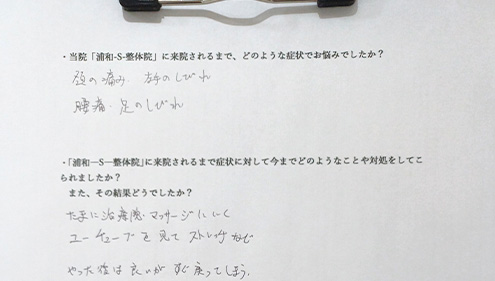 ・当院「浦和-S-整体院」に来院されるまで、どのような症状でお悩みでしたか？
頚の痛み 左手のしびれ
腰痛・足のしびれ
・「浦和―S―整体院」に来院されるまで症状に対して今までどのようなことや対処をしてこ
られましたか？
また、その結果どうでしたか？
たまに治療院・マッサージにいく
ユーチューブを見てストレッチなど
やった後は良いがすぐ戻ってしまう。